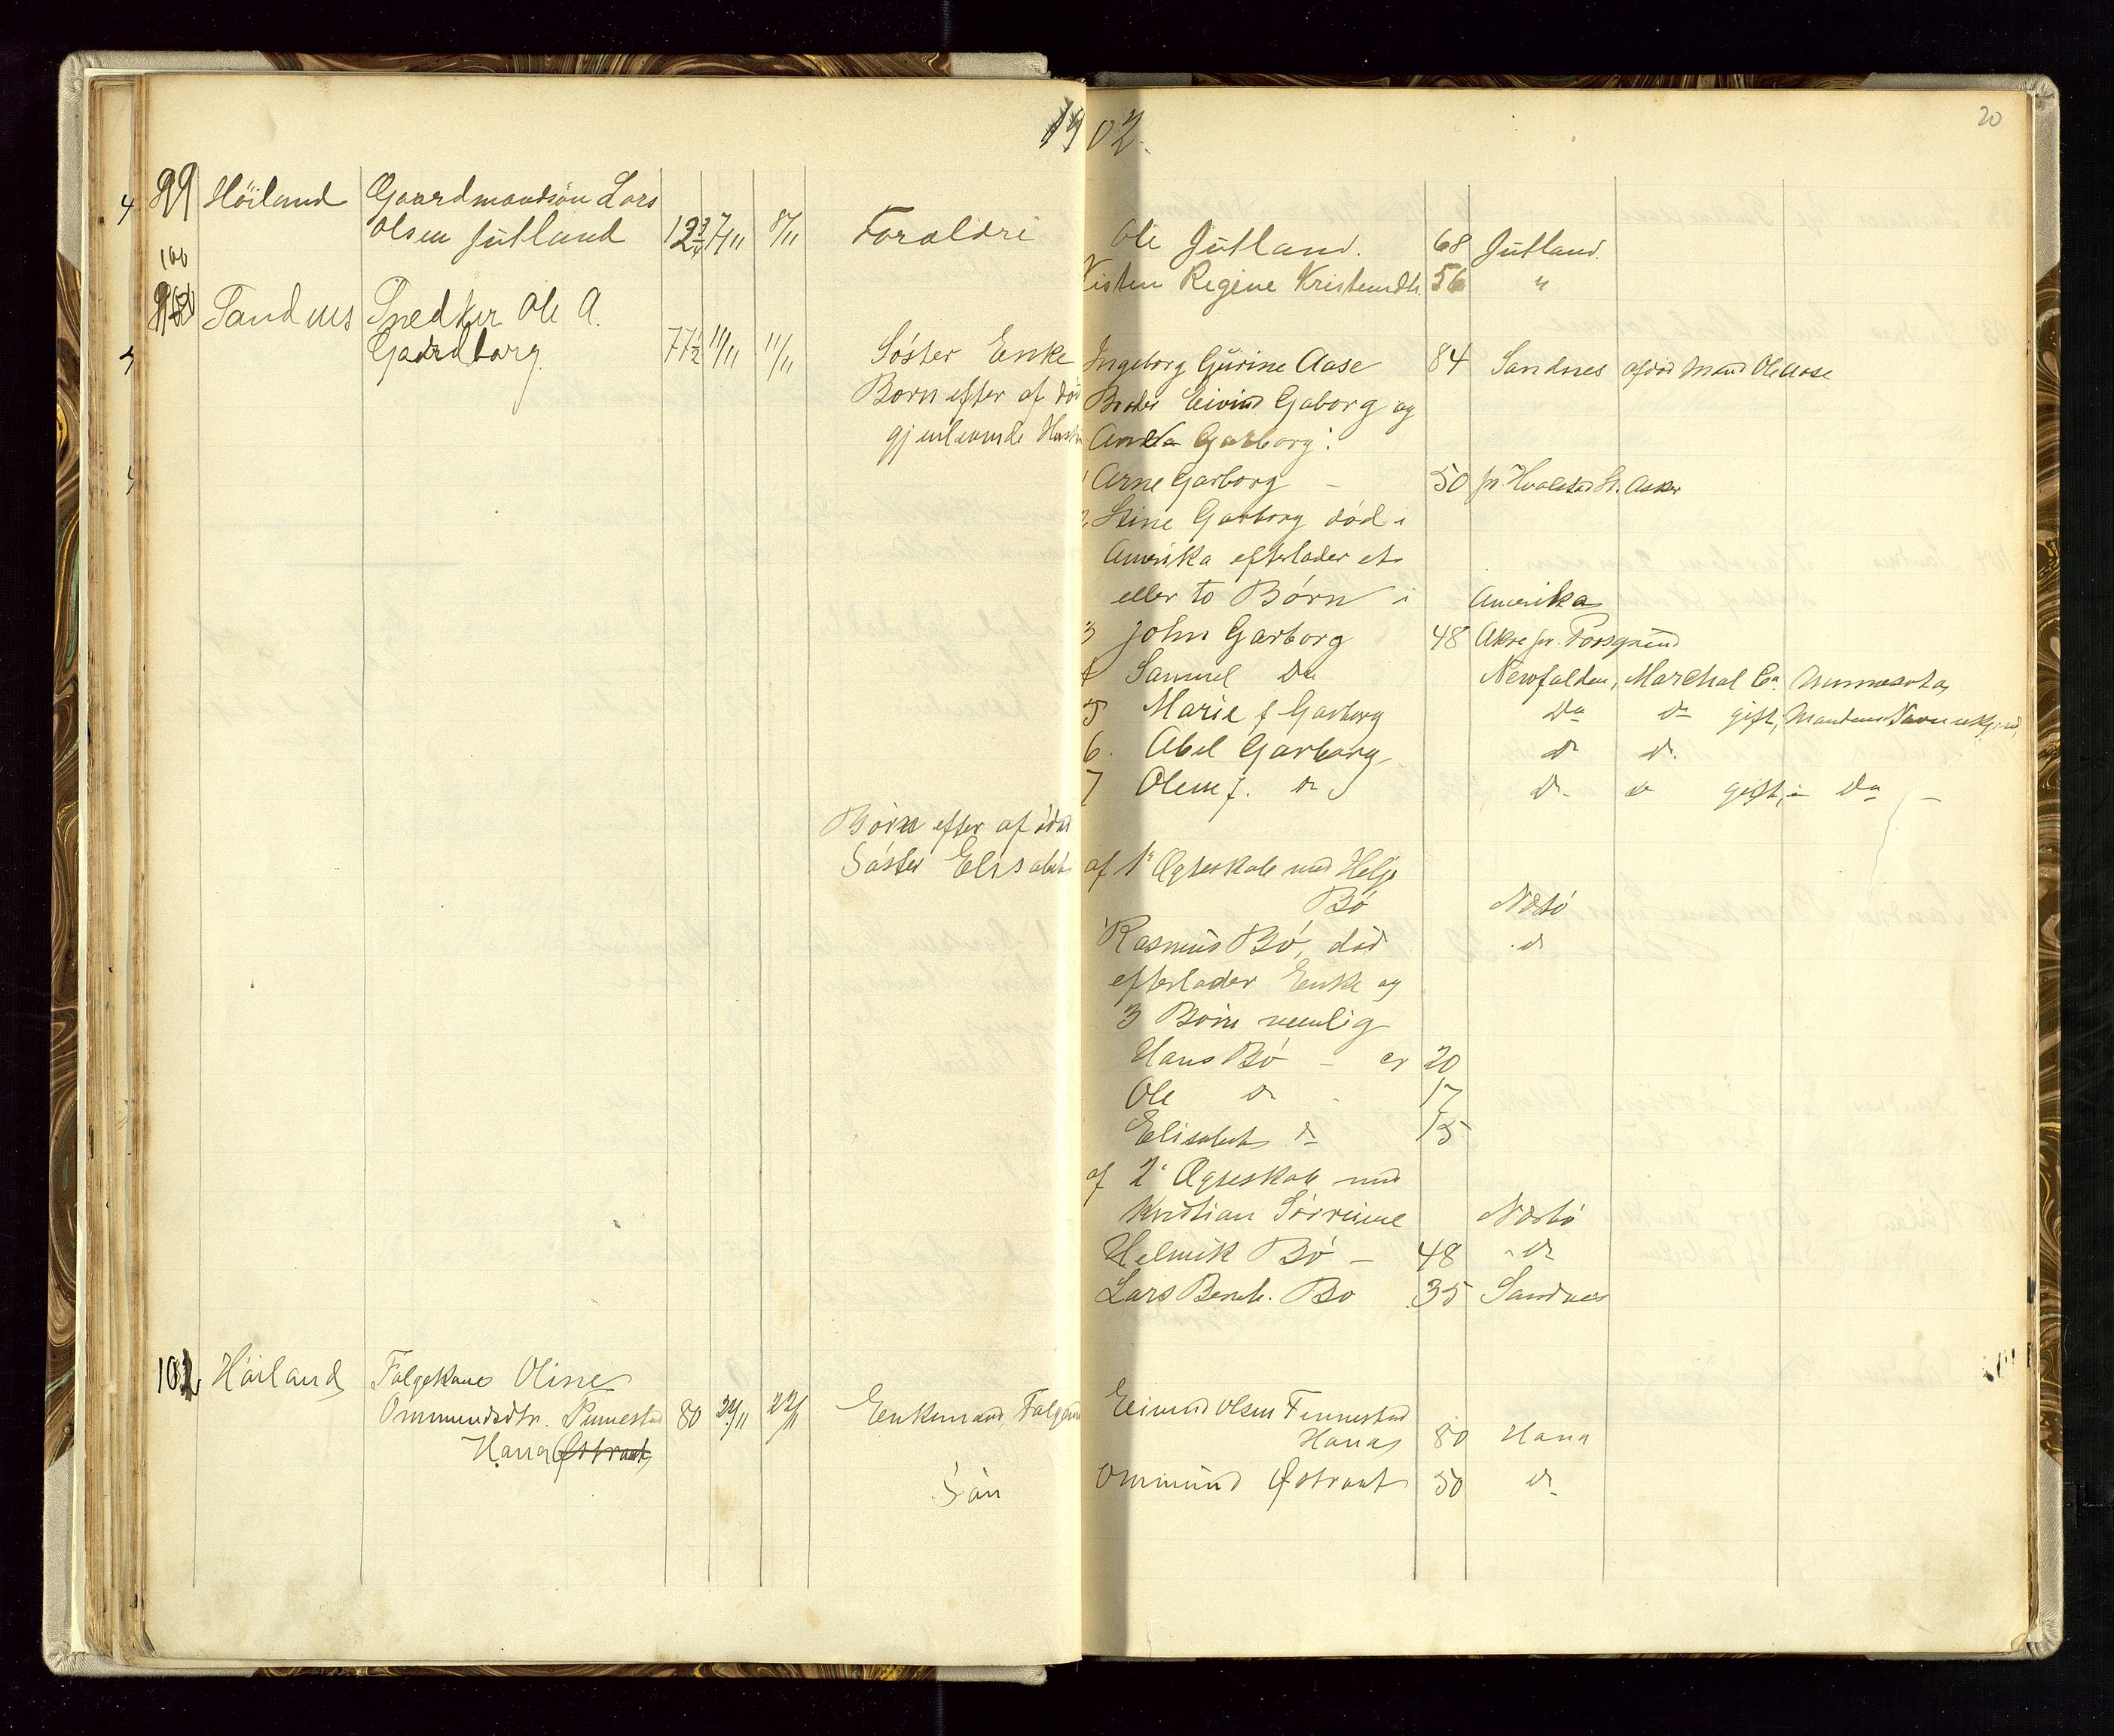 1902.
20
99 Höiland Gaardmandsön Lars
Olsen Jütland 7/11 8/11 Foraldre Ole Jütland. 68 Jütland.
100
Kisten Regine Kristensdtr. 56 "
Sandnes Snedker Ole A.
Garborg 77½ 11/11 11/11 Söster Enke Ingeborg Gürine Aase 84 Sandnes afdöd Mand Ole Aase
Börn efter af död Broder Eivind Gaborg og
gjenlevende Hustru Anna Garborg:
1 Arne Garborg - 50 pr. Hvalstad St. Asker
2 Stine Garborg död i
Amerika efterlader et
eller to Börn i Amerika
3 John Garborg 48 Akre pr. Porsgrund
4 Samuel Do Newfolden, Marchal Co. Minnesota
5 Marie f Garborg Do do gift, Mandens Navn
6. Abel Garborg do do.
7 Olene f. do do do gift, - Do -
Börn efter af död
Söster Elisabet af 1ste Ægteskab med Helje
Bö Næsbö
Rasmus Bö, död do
efterlader Enke og
3 Börn nemlig
Hans Bö - er 20
Ole do - 17
Elisabet do 15
af 2 Ægteskab med
Kristian Næsbö
Helmik Bö - 48 do
Lars Bernh. Bö 35 Sandnes
101 Höiland Folgekone Oline
Ommundsdtr. 80 22/11 Enkemand Eivind Olsen Tennestad
Hana Østraat Hana 80 Hana
Sön Ommund Østraat 50 do